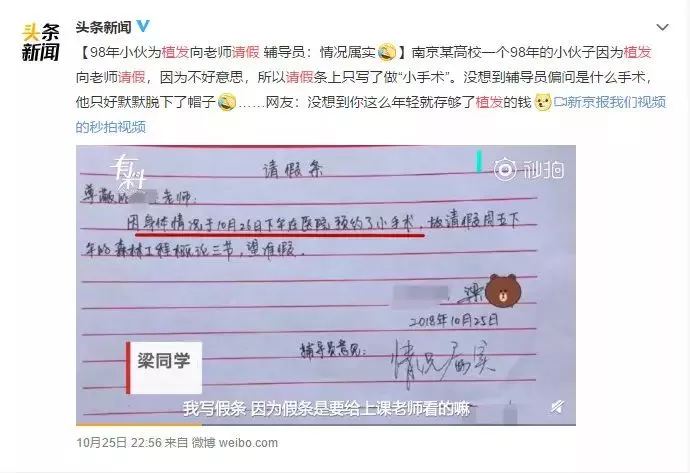 头条新闻
头条
新闻
【98年小伙为植发向老师请假 辅导员：情况属实】南京某高校一个98年的小伙子因为植发
向老师请假，因为不好意思，所以请假条上只写了做“小手术”。没想到辅导员偏问是什么手术，
他只好默默脱下了帽子……网友：没想到你这么年轻就存够了植发的钱 新京报我们视频
的秒拍视频
有料
秒拍
请假条
尊敬的 老师：
因身体情况于10月26日下午在医院预约了小手术，故请假周五下
午的森林工程概论三节，望准假。
梁
2018年10月25日
辅导员意见：
情况属实
梁同学
我写假条 因为假条是要给上课老师看的嘛
10月25日 22:56 来自 微博 weibo.com